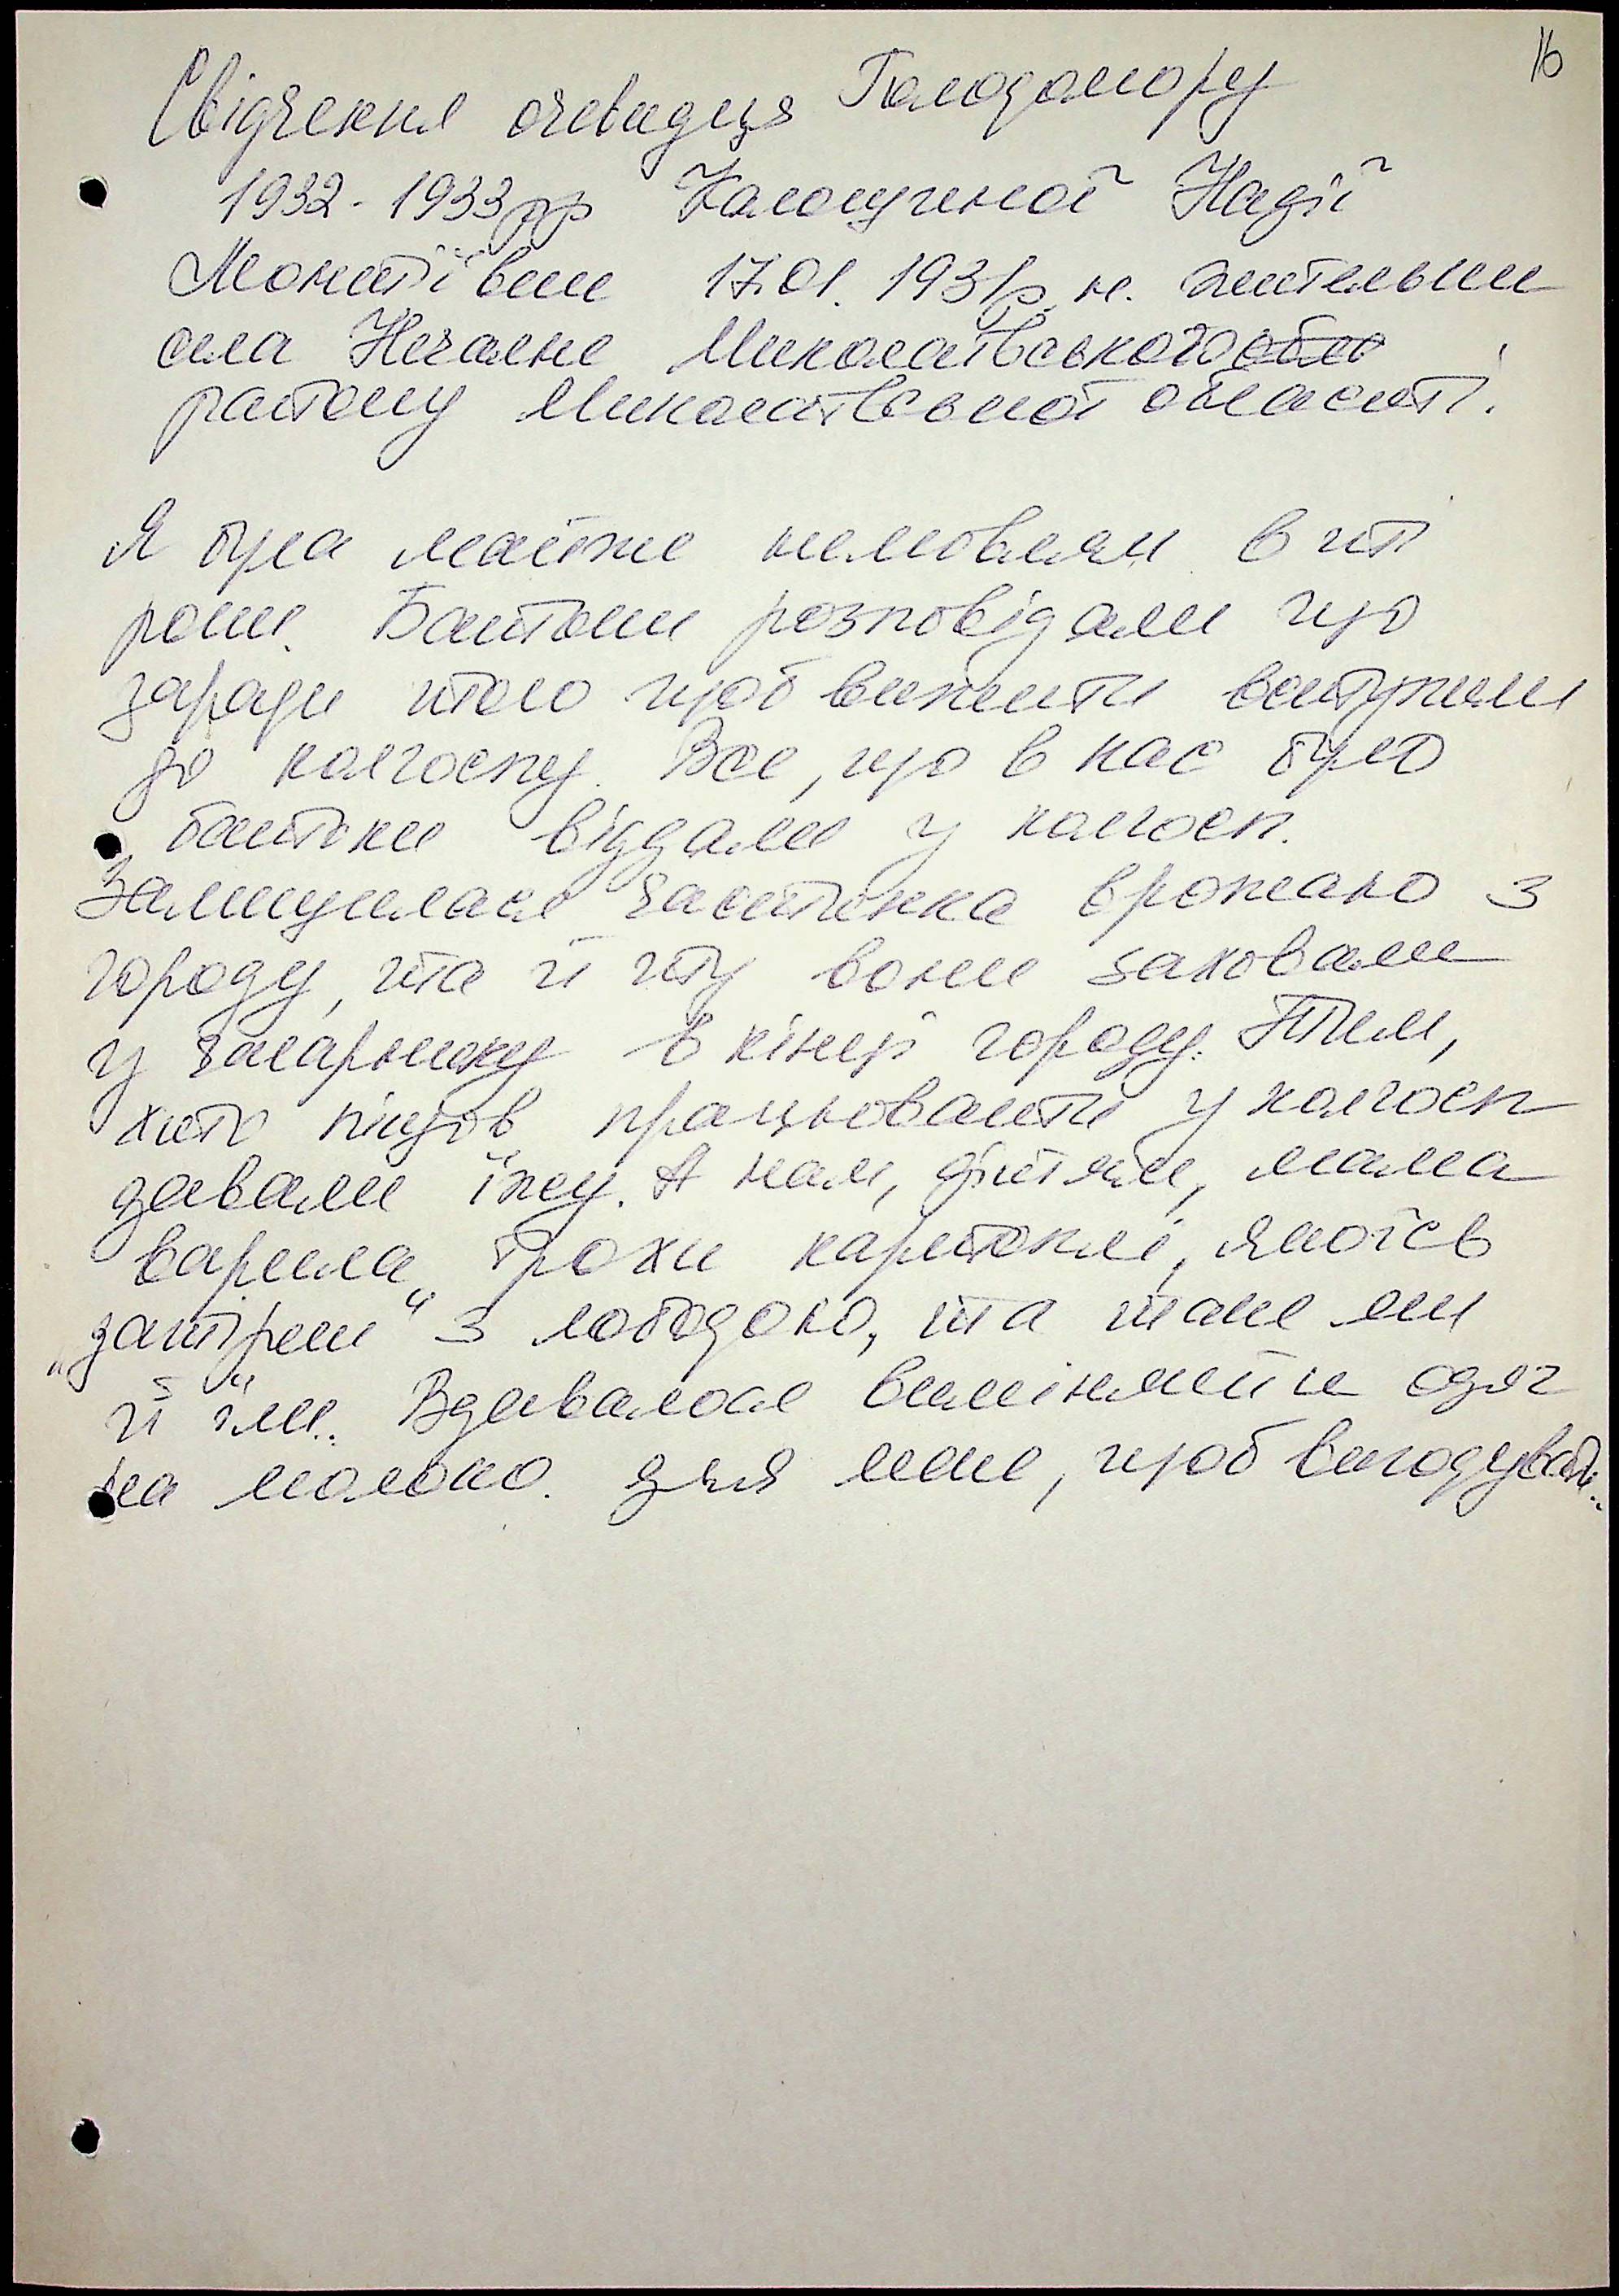 16
Свідчення очевидця Голодомору
1932-1933рр Калюжної Надії
Мокіївни 17.01.1931р.н. жительки
села Нечаяне Миколаївського обл
району Миколаївської області.
Я була майже немовлям в ті
роки. Батьки розповідали що
заради того щоб вижити вступили
до колгоспу. Все, що в нас було
батьки віддали у колгосп.
Залишилася частинка врожаю з
городу, та й ту вони заховали
у чагарнику в кінці городу. Тим,
хто пішов працювати у колгосп
давали їжу. А нам, дітям, мама
варила трохи картоплі, якоїсь
"затірки" з лободою, та таке ми
й їли. Вдавалося виміняти одяг
на молоко для мене, щоб вигодувати..